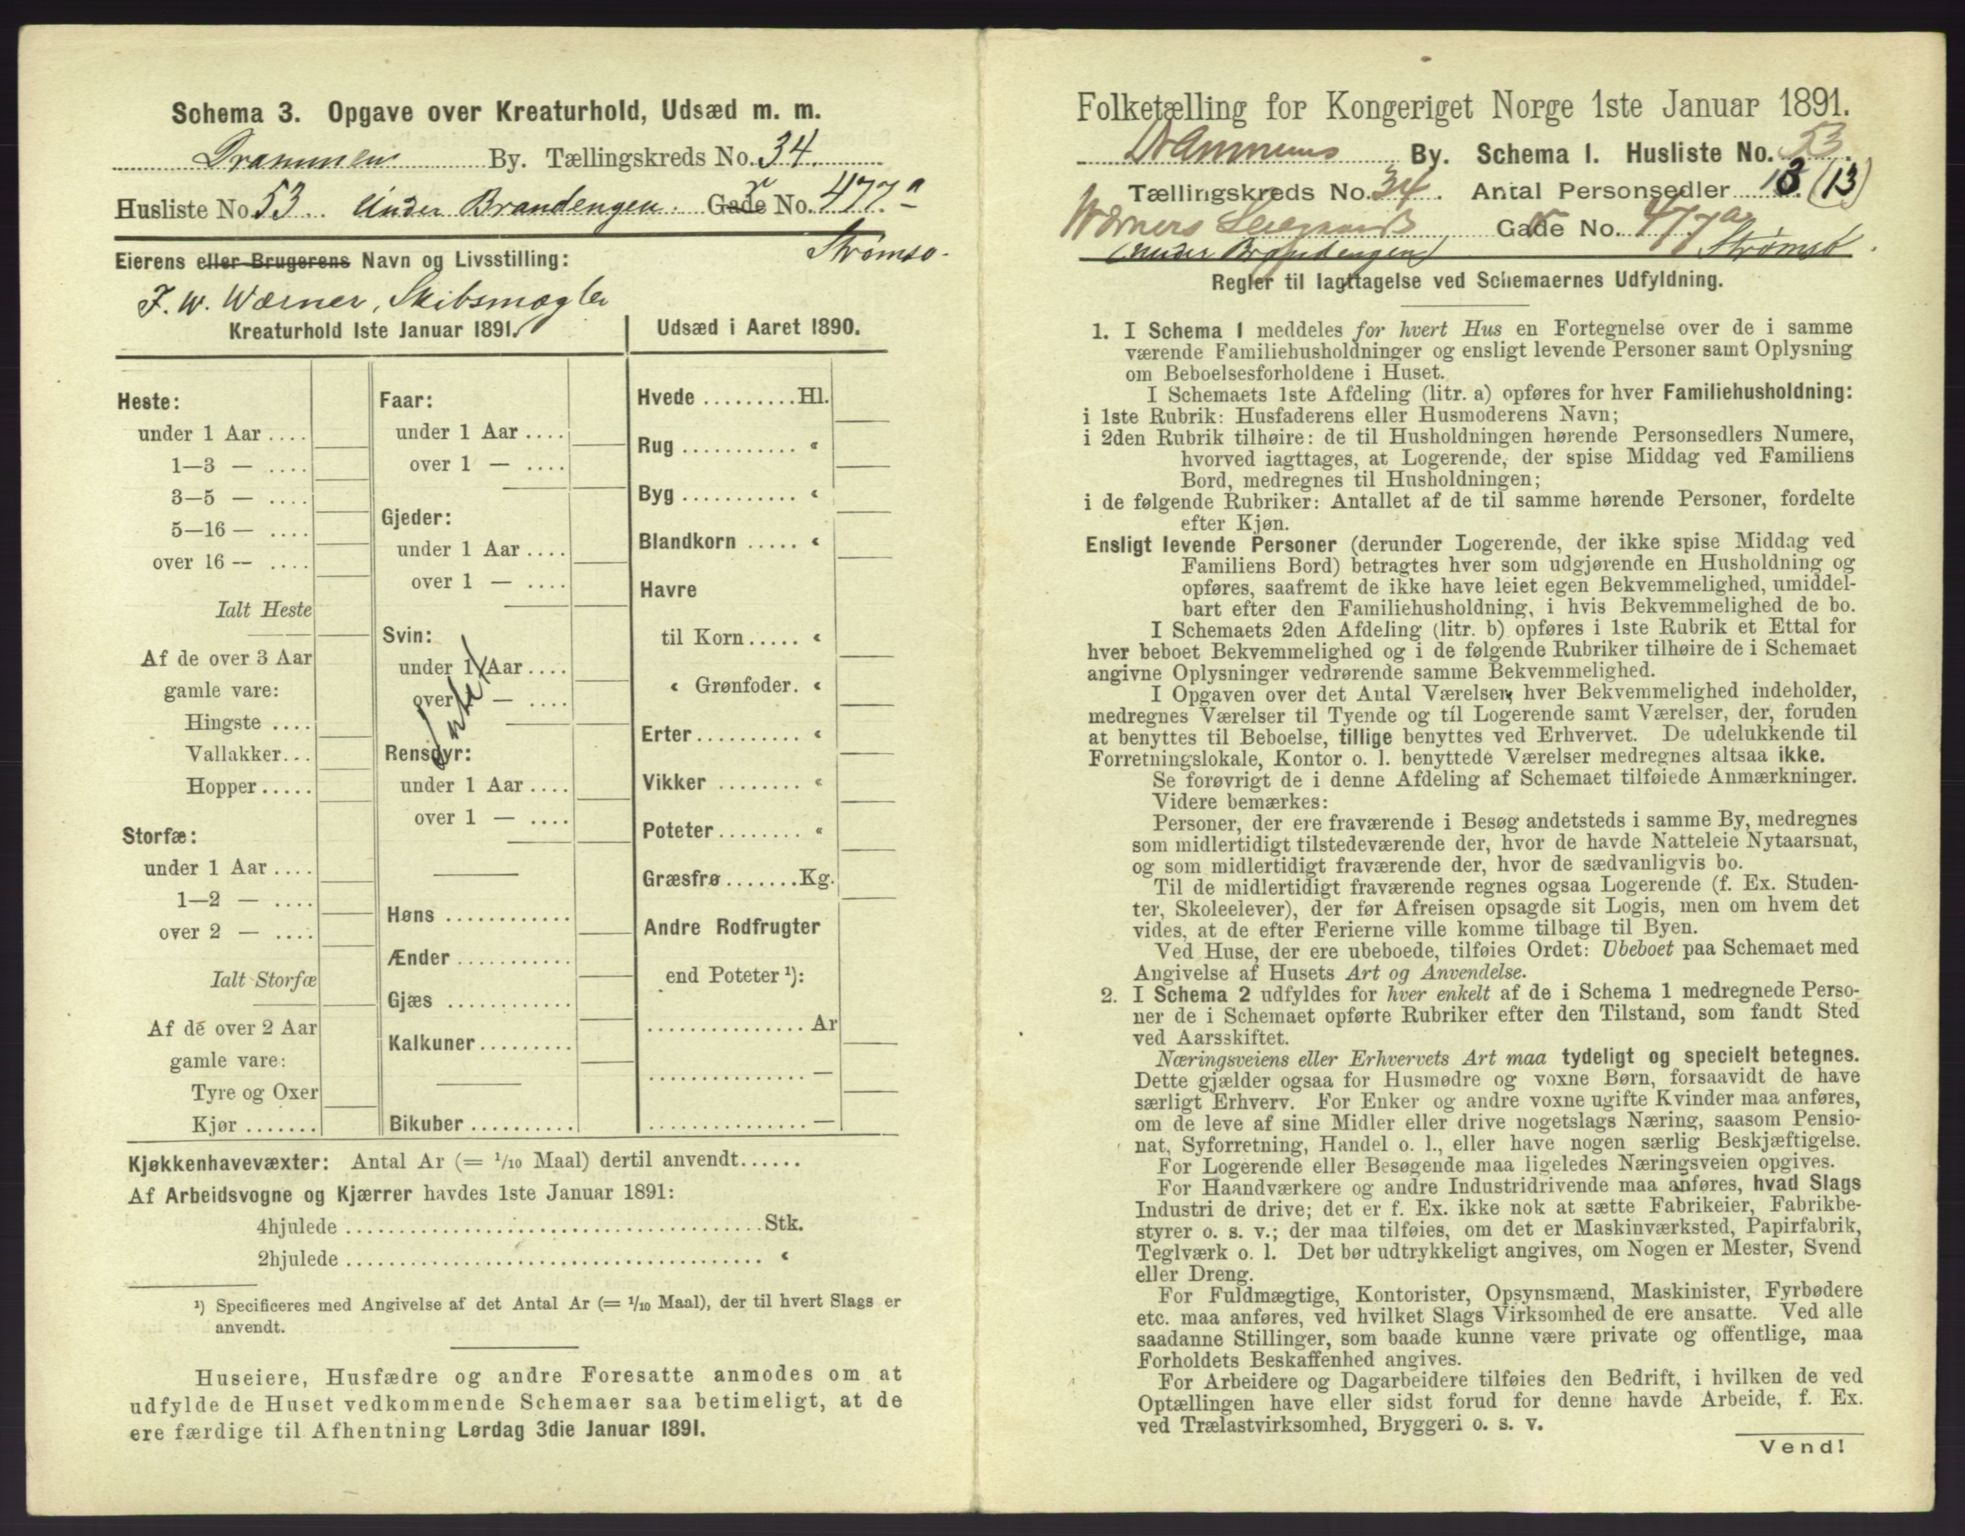 Schema 3. Opgave over Kreaturhold, Udsæd m. m.
Drammens By. Tællingskreds No. 34.
Husliste No. 53 Under Brandengen. Gade No. 477a
Strømsø.
Eierens eller Brugerens Navn og Livsstilling:
F. W. Wærner, Skibsmægler
Kreaturhold 1ste Januar 1891.
Heste:
under 1 Aar ....
1—3 — ....
3—5 — ....
5—16 — ....
over 16 — ....
Ialt Heste
Af de over 3 Aar
gamle vare:
Hingste ....
Vallakker...
Hopper.....
Storfæ:
under 1 Aar ....
1—2 — ....
over 2 — ....
Ialt Storfæ
Af de over 2 Aar
gamle vare:
Tyre og Oxer
Kjør .......
Faar:
under 1 Aar ....
over 1 — ....
Gjeder:
under 1 Aar ....
over 1 — ....
Svin:
under 1 Aar ....
over 1 — ....
Intet
Rensdyr:
under 1 Aar ....
over 1 — ....
Høns ............
Ænder ...........
Gjæs ............
Kalkuner.........
Bikuber ..........
Udsæd i Aaret 1890.
Hvede .........Hl.
Rug ........... «
Byg ........... «
Blandkorn ..... «
Havre
til Korn ..... «
« Grønfoder. «
Erter.......... «
Vikker ........ «
Poteter........ «
Græsfrø .......Kg.
Andre Rodfrugter
end Poteter ¹):
............... Ar
............... —
............... —
Kjøkkenhavevæxter: Antal Ar (= 1/10 Maal) dertil anvendt......
Af Arbeidsvogne og Kjærrer havdes 1ste Januar 1891:
4hjulede ......................................Stk.
2hjulede ...................................... «
¹) Specificeres med Angivelse af det Antal Ar (= 1/10 Maal), der til hvert Slags er
anvendt.
Huseiere, Husfædre og andre Foresatte anmodes om at
udfylde de Huset vedkommende Schemaer saa betimeligt, at de
ere færdige til Afhentning Lørdag 3die Januar 1891.
Folketælling for Kongeriget Norge 1ste Januar 1891.
Drammens By. Schema 1. Husliste No. 53
Tællingskreds No. 34. Antal Personsedler 13 (13)
Wærners Gade No. 477a
(under Brandengen) Strømsø.
Regler til Iagttagelse ved Schemaernes Udfyldning.
1. I Schema 1 meddeles for hvert Hus en Fortegnelse over de i samme
værende Familiehusholdninger og ensligt levende Personer samt Oplysning
om Beboelsesforholdene i Huset.
I Schemaets 1ste Afdeling (litr. a) opføres for hver Familiehusholdning:
i 1ste Rubrik: Husfaderens eller Husmoderens Navn;
i 2den Rubrik tilhøire: de til Husholdningen hørende Personsedlers Numere,
hvorved iagttages, at Logerende, der spise Middag ved Familiens
Bord, medregnes til Husholdningen;
i de følgende Rubriker: Antallet af de til samme hørende Personer, fordelte
efter Kjøn.
Ensligt levende Personer (derunder Logerende, der ikke spise Middag ved
Familiens Bord) betragtes hver som udgjørende en Husholdning og
opføres, saafremt de ikke have leiet egen Bekvemmelighed, umiddel-
bart efter den Familiehusholdning, i hvis Bekvemmelighed de bo.
I Schemaets 2den Afdeling (litr. b) opføres i 1ste Rubrik et Ettal for
hver beboet Bekvemmelighed og i de følgende Rubriker tilhøire de i Schemaet
angivne Oplysninger vedrørende samme Bekvemmelighed.
I Opgaven over det Antal Værelser, hver Bekvemmelighed indeholder,
medregnes Værelser til Tyende og til Logerende samt Værelser, der, foruden
at benyttes til Beboelse, tillige benyttes ved Erhvervet. De udelukkende til
Forretningslokale, Kontor o. l. benyttede Værelser medregnes altsaa ikke.
Se forøvrigt de i denne Afdeling af Schemaet tilføiede Anmærkninger.
Videre bemærkes:
Personer, der ere fraværende i Besøg andetsteds i samme By, medregnes
som midlertidigt tilstedeværende der, hvor de havde Natteleie Nytaarsnat,
og som midlertidigt fraværende der, hvor de sædvanligvis bo.
Til de midlertidigt fraværende regnes ogsaa Logerende (f. Ex. Studen-
ter, Skoleelever), der før Afreisen opsagde sit Logis, men om hvem det
vides, at de efter Ferierne ville komme tilbage til Byen.
Ved Huse, der ere ubeboede, tilføies Ordet: Ubeboet paa Schemaet med
Angivelse af Husets Art og Anvendelse.
2. I Schema 2 udfyldes for hver enkelt af de i Schema 1 medregnede Perso-
ner de i Schemaet opførte Rubriker efter den Tilstand, som fandt Sted
ved Aarsskiftet.
Næringsveiens eller Erhvervets Art maa tydeligt og specielt betegnes.
Dette gjælder ogsaa for Husmødre og voxne Børn, forsaavidt de have
særligt Erhverv. For Enker og andre voxne ugifte Kvinder maa anføres,
om de leve af sine Midler eller drive nogetslags Næring, saasom Pensio-
nat, Syforretning, Handel o. l., eller have nogen særlig Beskjæftigelse.
For Logerende eller Besøgende maa ligeledes Næringsveien opgives.
For Haandværkere og andre Industridrivende maa anføres, hvad Slags
Industri de drive; det er f. Ex. ikke nok at sætte Fabrikeier, Fabrikbe-
styrer o. s. v.; der maa tilføies, om det er Maskinværksted, Papirfabrik,
Teglværk o. l. Det bør udtrykkeligt angives, om Nogen er Mester, Svend
eller Dreng.
For Fuldmægtige, Kontorister, Opsynsmænd, Maskinister, Fyrbødere
etc. maa anføres, ved hvilket Slags Virksomhed de ere ansatte. Ved alle
saadanne Stillinger, som baade kunne være private og offentlige, maa
Forholdets Beskaffenhed angives.
For Arbeidere og Dagarbeidere tilføies den Bedrift, i hvilken de ved
Optællingen have eller sidst forud for denne havde Arbeide, f. Ex.
ved Trælastvirksomhed, Bryggeri o. s. v.
Vend!